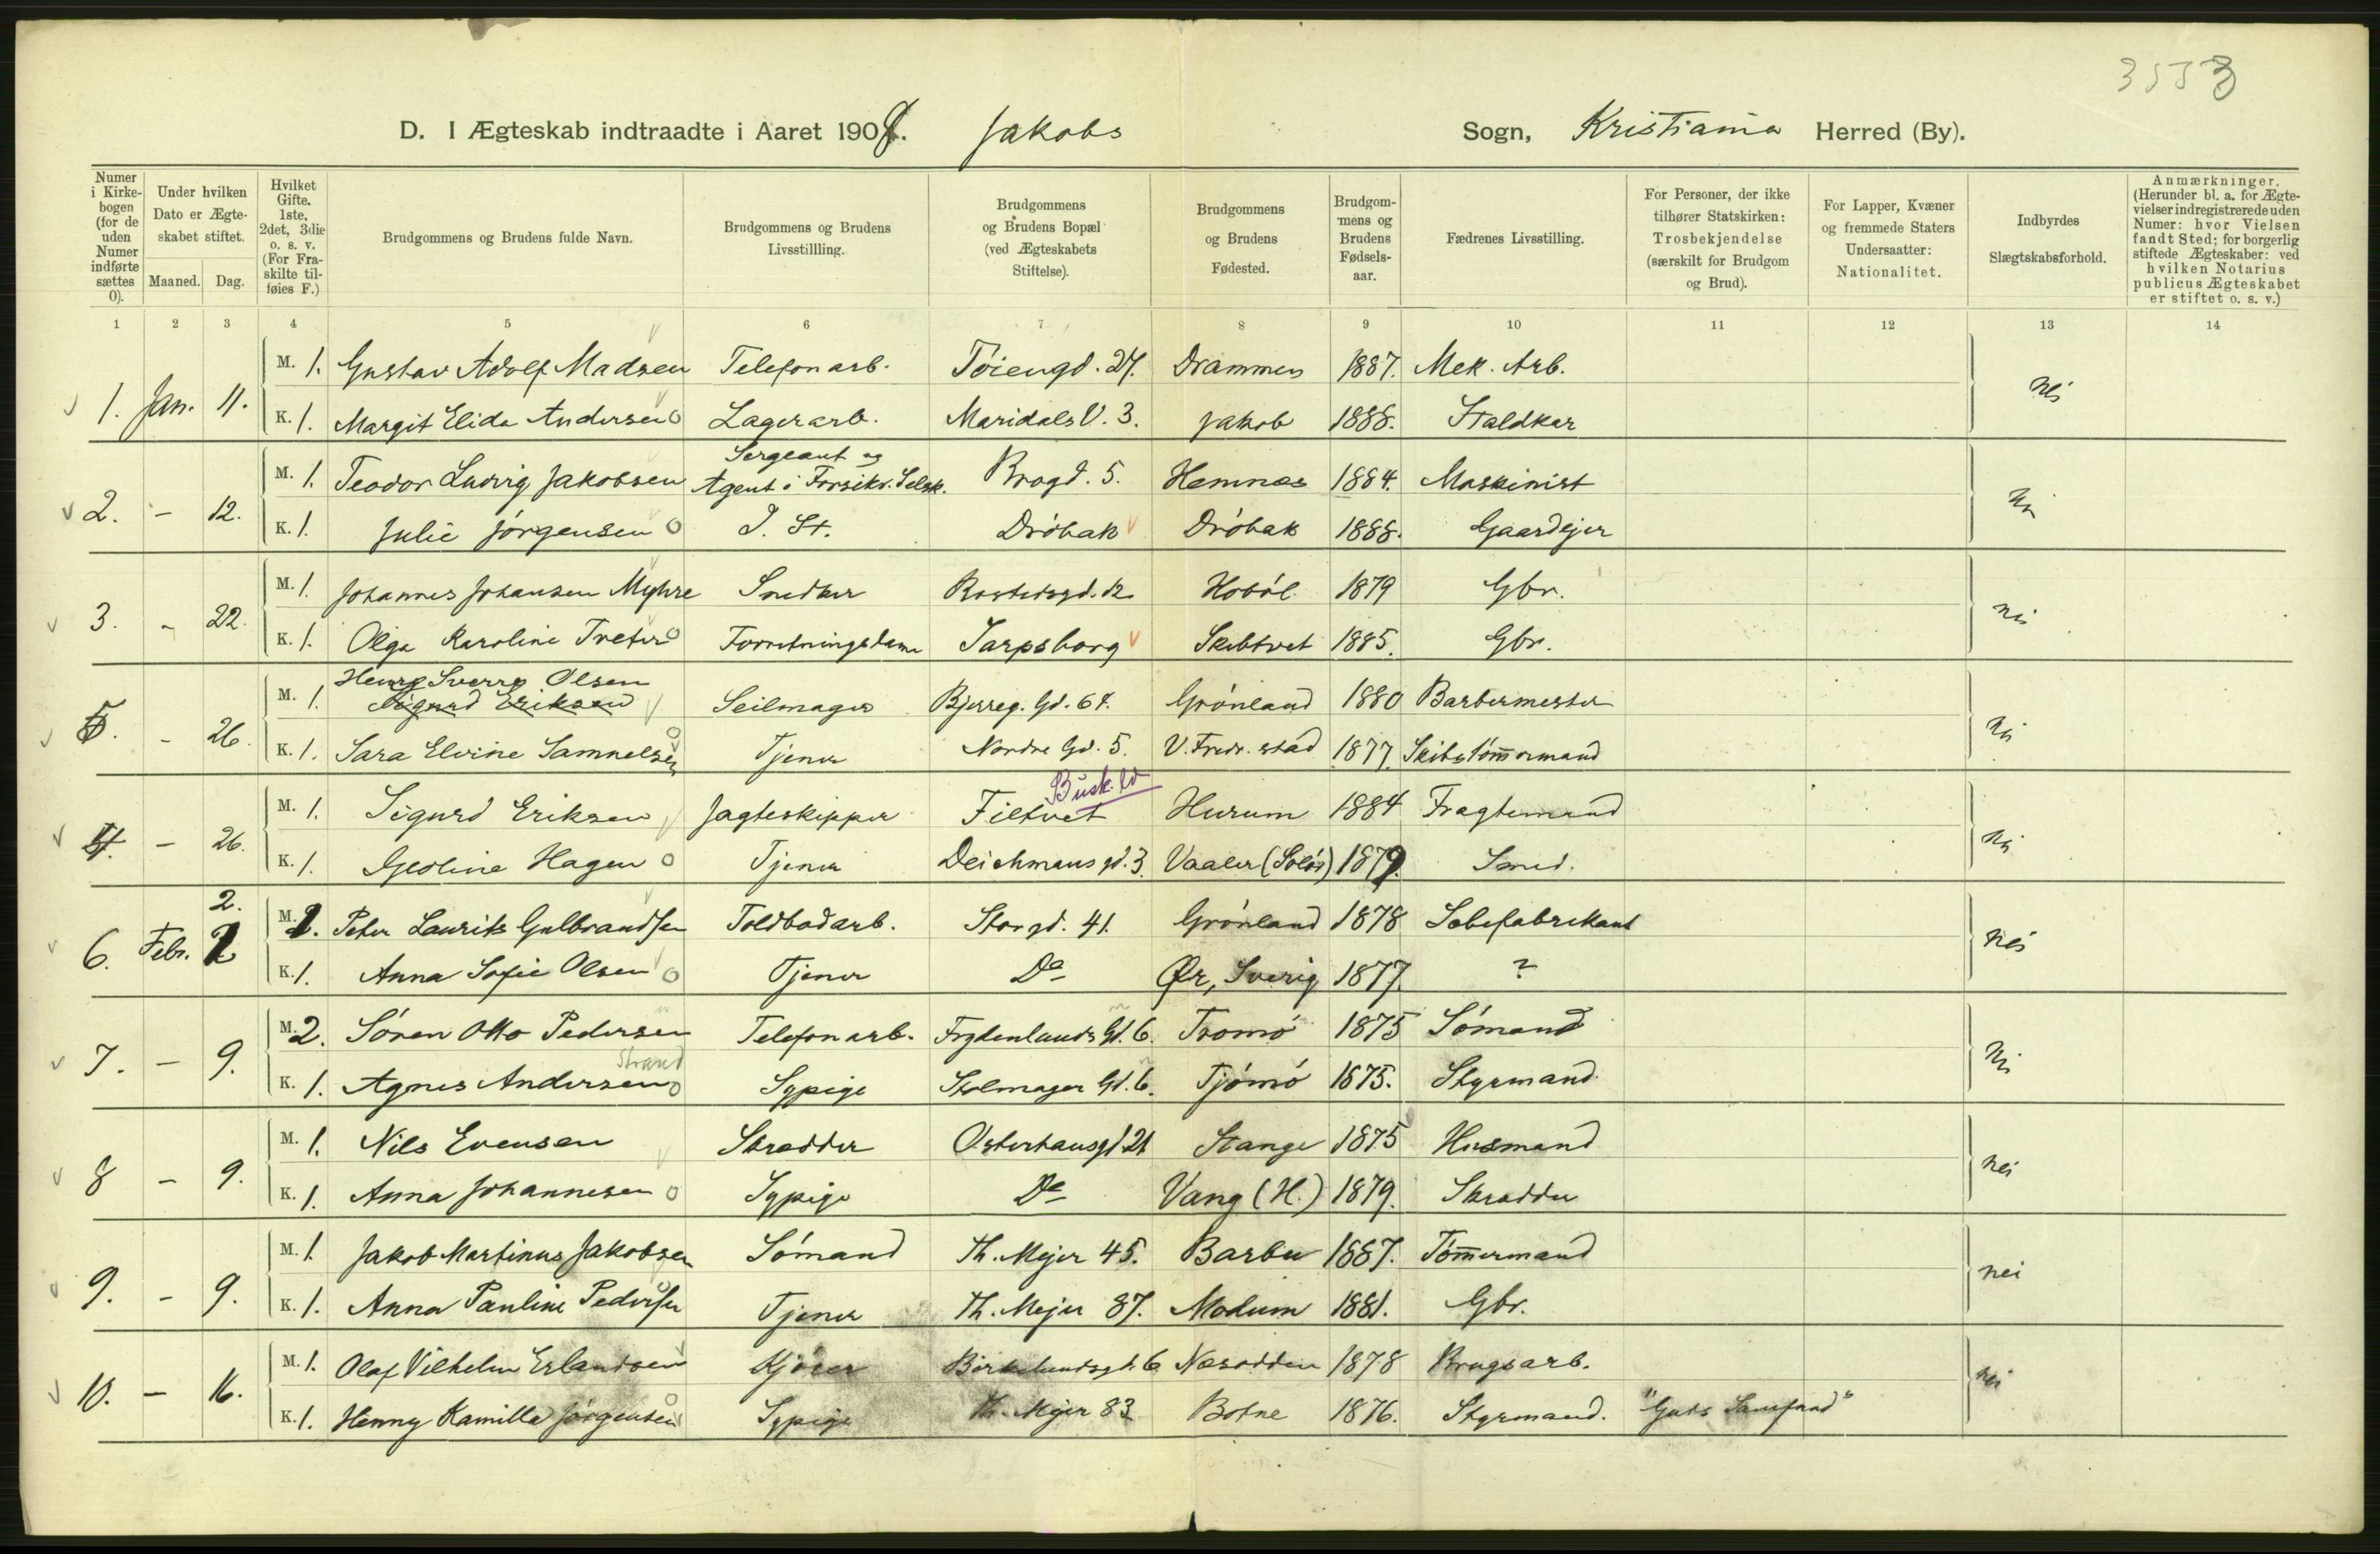 3553
D. I Ægteskab indtraadte i Aaret 1908. Jakobs Sogn, Kristiania Herred (By).
Numer i Kirkebogen (for de uden Numer indførte sættes 0). Under hvilken Dato er Ægteskabet stiftet. Maaned. Dag. Hvilket Gifte. 1ste, 2det, 3die o. s. v. (For Fraskilte tilføies F.) Brudgommens og Brudens fulde Navn. Brudgommens og Brudens Livsstillling. Brudgommens og Brudens Bopæl (ved Ægteskabets Stiftelse). Brudgommens og Brudens Fødested. Brudgommens og Brudens Fødselsaar. Fædrenes Livsstilling. For Personer, der ikke tilhører Statskirken: Trosbekjendelse (særskilt for Brudgom og Brud). For Lapper, Kvæner og fremmede Staters Undersaatter: Nationalitet. Indbyrdes Slægtskabsforhold. Anmærkninger. (Herunder bl. a. for Ægtevielser indregistrerede uden Numer: hvor Vielsen fandt Sted; for borgerlig stiftede Ægteskaber: ved hvilken Notarius publicus Ægteskabet er stiftet o. s. v.)
1 2 3 4 5 6 7 8 9 10 11 12 13 14
M. 1. Gustav Adolf Madsen Telefonarb. Tøiengd. 27. Drammen 1887. Mek. Arb.
1. Jan. 11. nei
K. 1. Margit Elida Andersen Lagerarb. Maridals V. 3. Jakob 1888. Staldkar
Sergeant og
M. 1. Teodor Ludvig Jakobsen Agent i Forsikr. Selsk. Brogd. 5. Hemnæs 1884. Maskinist
2. - 12. nei
K. 1. Julie Jørgensen I. St. Drøbak Drøbak 1888. Gaardejer
M. 1. Johannes Johansen Myhre Snedker Rostedsgd. 12. Hobøl 1879 Gbr.
3. - 22. nei
K. 1. Olga Karoline Treter Forretningsdame Sarpsborg Skibtvet 1885. Gbr.
Henry Sverre Olsen
M. 1. Sigurd Eriksen Seilmager Bjerreg. Gd. 67. Grønland 1880 Barbermester
5. - 26. nei
K. 1. Sara Elvine Samuelsen Tjener Nordre Gd. 5. V. Fredr.stad 1877. Skibstømmermand
Busk. ld
M. 1. Sigurd Eriksen Jagteskipper Filtvet Hurum 1884 Fragtemand
4. - 26. nei
K. 1. Gjedine Hagen Tjener Deichmans gd. 3. Vaaler (Solør) 1879. Smed.
2.
M. 1. Peter Laurits Gulbrandsen Toldbodarb. Storgd. 41. Grønland 1878 Sæbefabrikant
6. Febr. 2 nei
K. 1. Anna Sofie Olsen Tjener Do Ør, Sverig 1877. ?
M. 2. Søren Otto Pedersen Telefonarb. Frydenlunds Gd. 6. Tromø 1875 Sømand
7. - 9. Strand nei
K. 1. Agnes Andersen Sypige Stolmager Gd. 6. Tjømø 1875. Styrmand.
M. 1. Nils Evensen Skrædder Osterhausgd. 21 Stange 1875 Husmand
8 - 9. nei
K. 1. Anna Johannesen Sypige Do Vang (H.) 1879. Skrædder
M. 1. Jakob Martinus Jakobsen Sømand Th. Mejer 45. Barbu 1887. Tømmermand
9. - 9. nei
K. 1. Anna Pauline Pedersen Tjener Th. Mejer 87. Modum 1881. Gbr.
M. 1. Olaf Vilhelm Erlandsen Kjører Birkelundsgd. 6 Næsodden 1878 Brugsarb.
10. - 16. nei
K. 1. Henny Kamilla Jørgensen Sypige Th. Mejer 83 Botne 1876. Styrmand. "Guds Samfund"